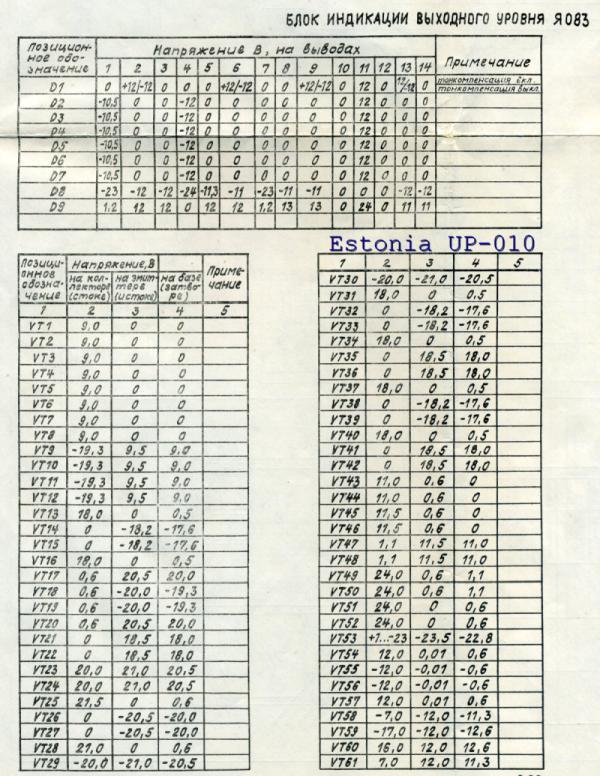 БЛОК ИНДИКАЦИИ ВЫХОДНОГО УРОВНЯ Я083
Позицион- Напряжение В, на выводах Примечание
ное обо-
значение 1 2 3 4 5 6 7 8 9 10 11 12 13 14
D1 0 +12/-12 0 0 0 +12/-12 0 0 +12/-12 0 12 0 12/-12 0 тонкомпенсация вкл.
тонкомпенсация выкл.
D2 -10,5 0 0 -12 0 0 0 0 0 0 12 0 0 0
D3 -10,5 0 0 -12 0 0 0 0 0 0 12 0 0 0
D4 -10,5 0 0 -12 0 0 0 0 0 0 12 0 0 0
D5 -10,5 0 0 -12 0 0 0 0 0 0 12 0 0 0
D6 -10,5 0 0 -12 0 0 0 0 0 0 12 0 0 0
D7 -10,5 0 0 -12 0 0 0 0 0 0 12 0 0 0
D8 -23 -12 -12 -24 -11,3 -11 -23 -11 -11 0 0 0 -12 -12
D9 1,2 12 12 0 12 12 1,2 13 13 0 24 0 11 11
Estonia UP-010
Позици- Напряжение, В Приме-
онное на кол- на эмит- на базе чание
обозна- лекторе тере (затво-
чение (стоке) (истоке) ре)
1 2 3 4 5
VT1 9,0 0 0
VT2 9,0 0 0
VT3 9,0 0 0
VT4 9,0 0 0
VT5 9,0 0 0
VT6 9,0 0 0
VT7 9,0 0 0
VT8 9,0 0 0
VT9 -19,3 9,5 9,0
VT10 -19,3 9,5 9,0
VT11 -19,3 9,5 9,0
VT12 -19,3 9,5 9,0
VT13 18,0 0 0,5
VT14 0 -18,2 -17,6
VT15 0 -18,2 -17,6
VT16 18,0 0 0,5
VT17 0,6 20,5 20,0
VT18 0,6 -20,0 -19,3
VT19 0,6 -20,0 -19,3
VT20 0,6 20,5 20,0
VT21 0 18,5 18,0
VT22 0 18,5 18,0
VT23 20,0 21,0 20,5
VT24 20,0 21,0 20,5
VT25 21,5 0 0,6
VT26 0 -20,5 -20,0
VT27 0 -20,5 -20,0
VT28 21,0 0 0,6
VT29 -20,0 -21,0 -20,5
1 2 3 4 5
VT30 -20,0 -21,0 -20,5
VT31 18,0 0 0,5
VT32 0 -18,2 -17,6
VT33 0 -18,2 -17,6
VT34 18,0 0 0,5
VT35 0 18,5 18,0
VT36 0 18,5 18,0
VT37 18,0 0 0,5
VT38 0 -18,2 -17,6
VT39 0 -18,2 -17,6
VT40 18,0 0 0,5
VT41 0 18,5 18,0
VT42 0 18,5 18,0
VT43 11,0 0,6 0
VT44 11,0 0,6 0
VT45 11,5 0,6 0
VT46 11,5 0,6 0
VT47 1,1 11,5 11,0
VT48 1,1 11,5 11,0
VT49 24,0 0,6 1,1
VT50 24,0 0,6 1,1
VT51 24,0 0 0,6
VT52 24,0 0 0,6
VT53 +1...-23 -23,5 -22,8
VT54 12,0 0,01 0,6
VT55 -12,0 -0,01 -0,6
VT56 -12,0 -0,01 -0,6
VT57 12,0 0,01 0,6
VT58 -7,0 -12,0 -11,3
VT59 -17,0 -12,0 -12,6
VT60 16,0 12,0 12,6
VT61 7,0 12,0 11,3